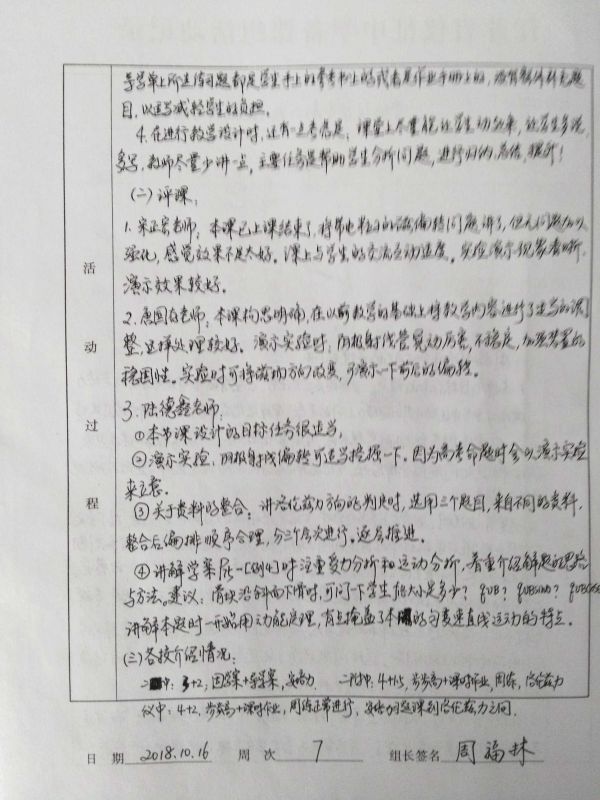 导学单上所选练习题都是学生手上的参考书上的或者是作业手册上的，没有额外补充题
目，以适当减轻学生的负担。
4. 在进行教学设计时，还有一点考虑是：课堂上尽量能让学生动起来，让学生多说，
多写，教师尽量少讲一点，主要任务是帮助学生分析问题，进行归纳、总结、提升！
(二) 评课：
老师：本课已上课结束了，将带电粒子的磁偏转问题讲了，但无问题加以
强化，感觉效果不是太好。课上与学生的交流互动适度。实验演示现象清晰，
演示效果较好。
2. 老师：本课构思明确，在以前教学的基础上将教学内容进行了适当的调
整，这样处理较好。演示实验时，阴极射线管晃动厉害，不稳定，加强装置的
稳固性。实验时可将磁场方向改变，可演示一下前后的偏转。
3. 陈德鑫老师：
①本节课设计的目标任务很适当。
②演示实验：阴极射线偏转可适当挖掘一下。因为高考命题时会以演示实验
来立意。
③关于资料的整合：讲洛伦兹力方向的判定时，选用三个题目，来自不同的资料，
整合后编排顺序合理，分三个层次进行。逐层推进。
④讲解学案 [例]时注重受力分析和运动分析，着重介绍解题的思路
与方法。建议：滑块沿斜面下滑时，可问一下学生 力是多少？ qvB？ qvBsinθ？
讲解本题时一开始用动能定理，有点掩盖了本 的匀变速直线运动的特点。
(三) 各校介绍情况：
二 中：3+2，图学案+导学案，安培力 二附中：4+1.5，步步高+课时作业，周练，洛伦兹力
仪中：4+2，步步高+课时作业，周练正常进行，安培力习题课到洛伦兹力之间.
活
动
过
程
日 期 2018.10.16 周 次 7 组长签名 周福林